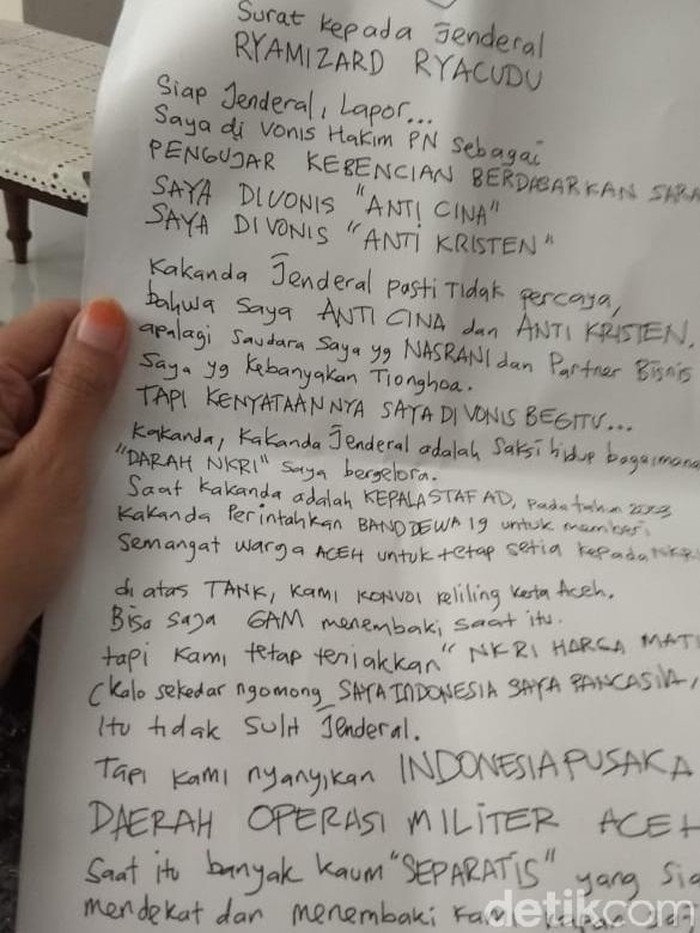 Surat kepada Jenderal
RYAMIZARD RYACUDU
Siap Jenderal, Lapor...
Saya di vonis Hakim PN sebagai
PENGUJAR KEBENCIAN BERDASARKAN SARA
SAYA DIVONIS "ANTI CINA"
SAYA DIVONIS "ANTI KRISTEN"
Kakanda Jenderal pasti tidak percaya,
bahwa saya ANTI CINA dan ANTI KRISTEN,
apalagi saudara saya yg NASRANI dan Partner Bisnis
saya yg kebanyakan Tionghoa.
TAPI KENYATAANNYA SAYA DIVONIS BEGITU...
Kakanda, Kakanda Jenderal adalah saksi hidup bagaimana
"DARAH NKRI" saya bergelora.
Saat kakanda adalah KEPALA STAF AD, pada tahun 2003
Kakanda Perintahkan BAND DEWA 19 untuk memberi
Semangat warga ACEH untuk tetap setia kepada NKRI
di atas TANK, kami KONVOI keliling kota Aceh.
Bisa saja GAM menembaki saat itu.
tapi kami tetap teriakkan "NKRI HARGA MATI
(kalo sekedar ngomong SAYA INDONESIA SAYA PANCASILA,
itu tidak sulit Jenderal.
Tapi kami nyanyikan INDONESIA PUSAKA
DAERAH OPERASI MILITER ACEH
Saat itu banyak kaum "SEPARATIS" yang
mendekat dan menembaki kami kapan
detikcom